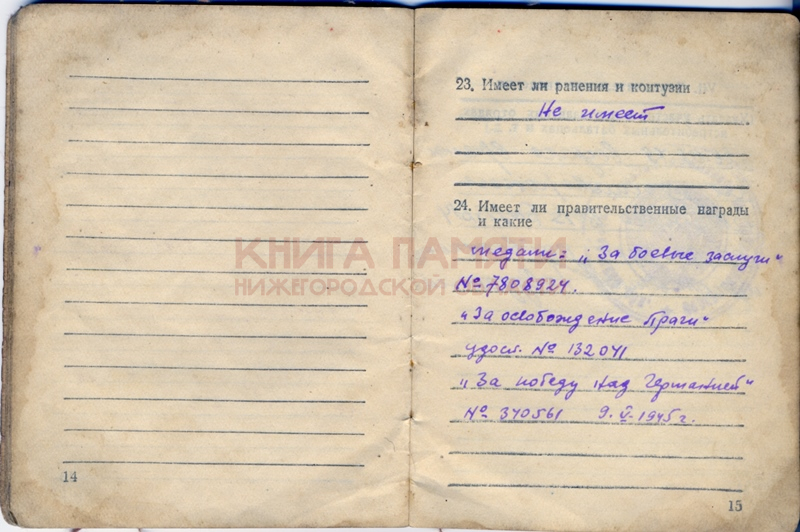 14
23. Имеет ли ранения и контузии
Не имеет
24. Имеет ли правительственные награды
и какие
медали: „За боевые заслуги“
№ 7808924.
„За освобождение Праги“
удост. № 132041
„За победу над Германией“
№ 370561 9.V-1945 г.
15
КНИГА ПАМЯТИ
НИЖЕГОРОДСКОЙ ОБЛАСТИ